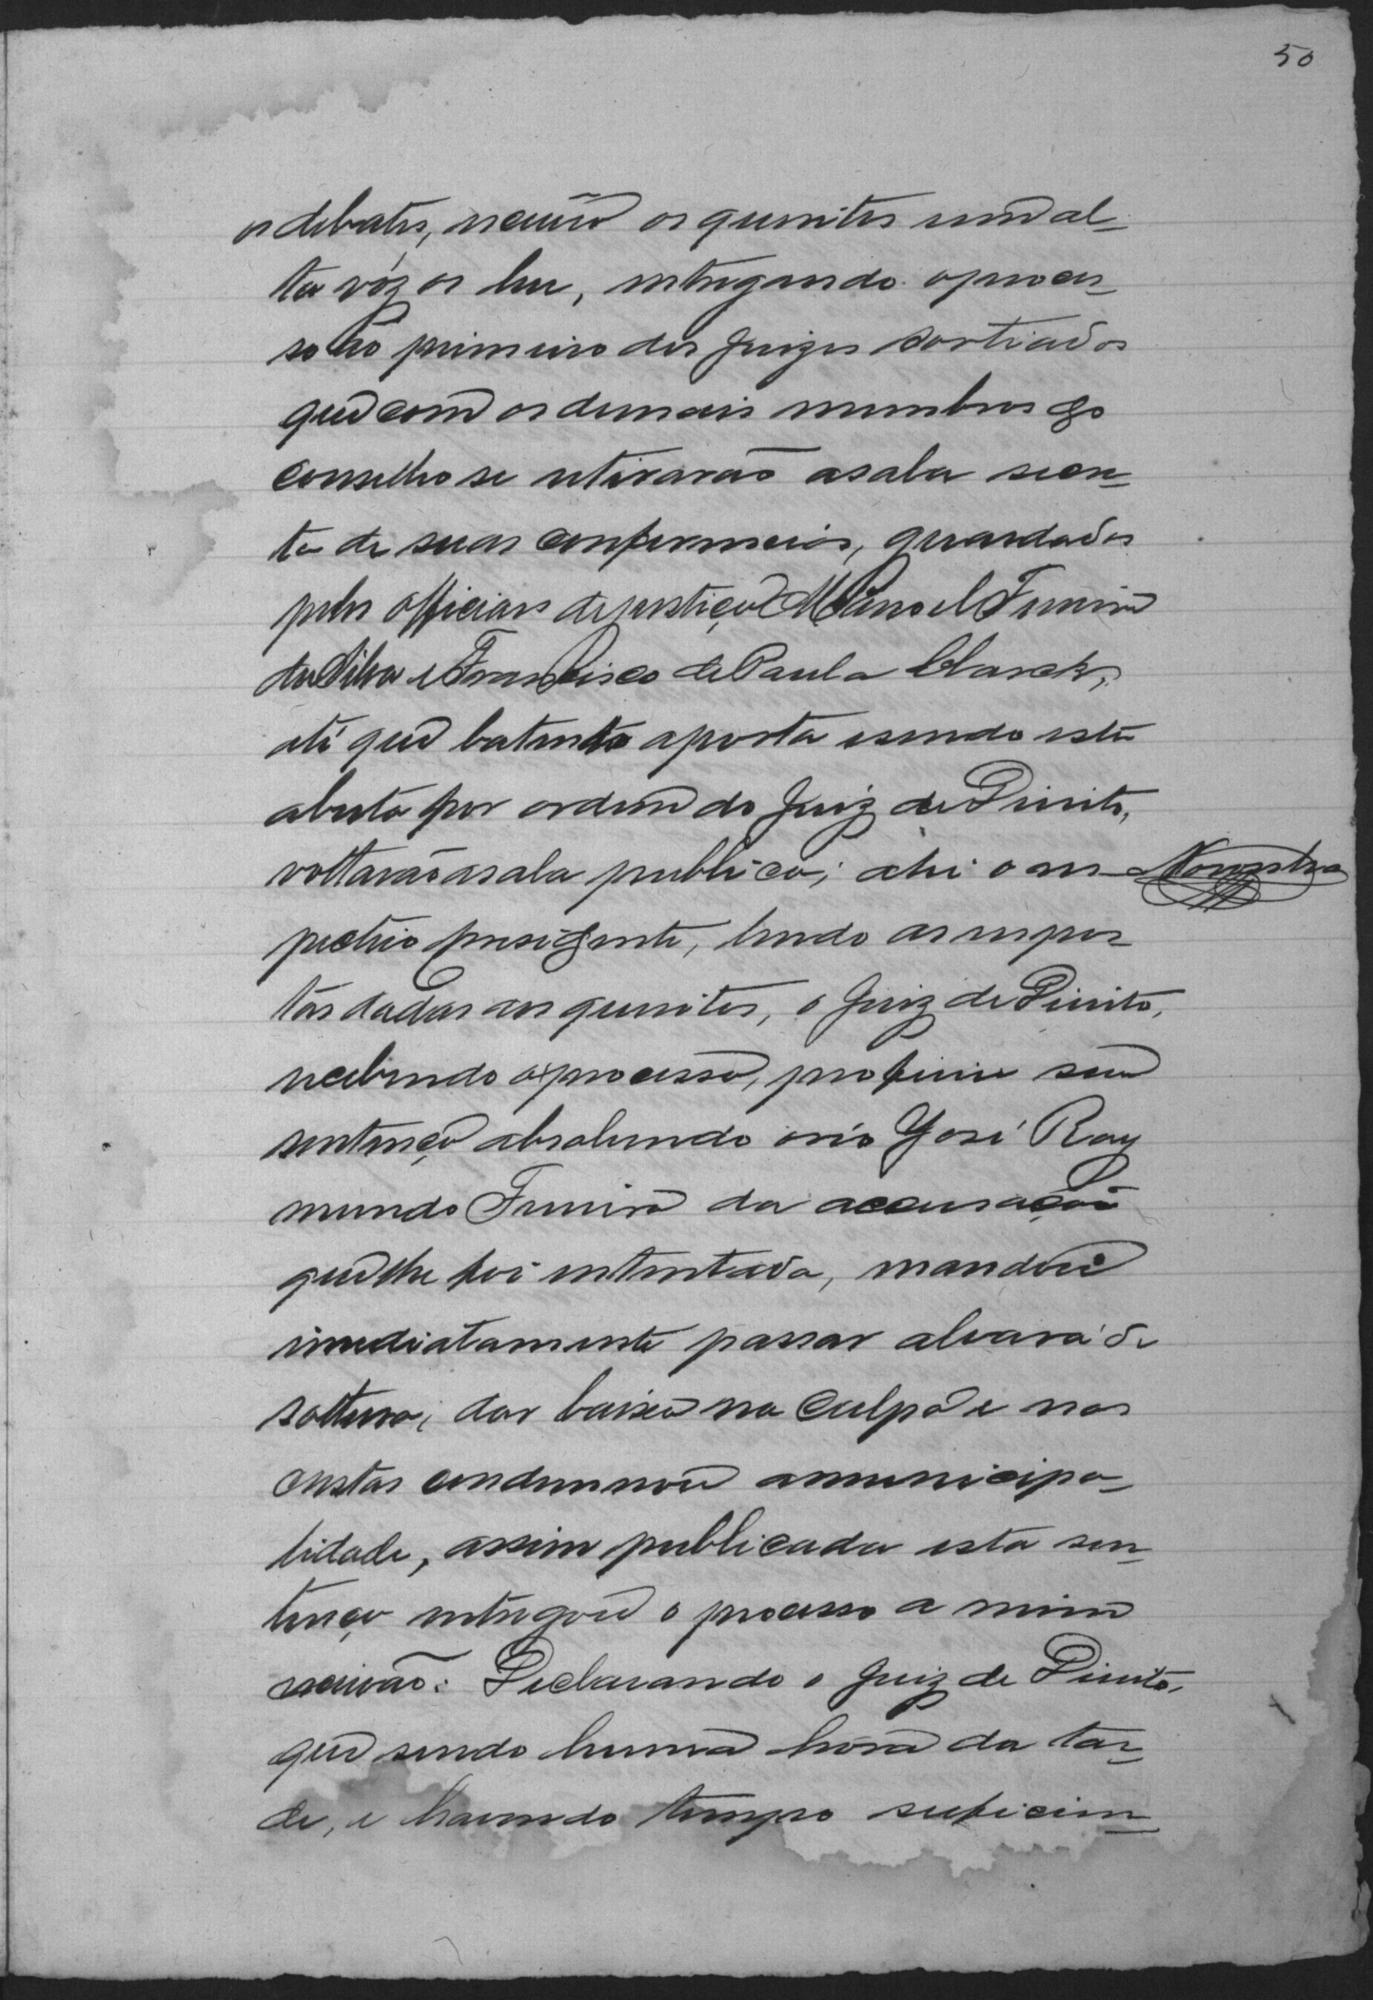 50
os debates, escreveo os quesitos em al-
ta voz os leu, entregando o proces-
so ao primeiro dos Juizes sortiados
que com os demais membros do
conselho se retirarão a sala secre-
ta de suas conferencias, guardados
pelos officiaes de justiça Manoel Ferreira
da Silva e Francisco de Paula Clarck,
até que batendo a porta e sendo esta
aberta por ordem do Juiz de Direito,
voltarão a sala publica; ahi o res-
pectivo presidente, lendo as respos-
tas dadas aos quesitos, o Juiz de Direito,
recebendo o processo, proferiu sua
sentença absolvendo o réo José Ray
mundo Ferreira da accusação
que lhe foi intentada, mandou
immediatamente passar alvará de
soltura, dar baixa na culpa e nas
custas condemnou a municipa-
lidade, assim publicada esta sen-
tença entregou o processo a mim
escrivão. Declarando o Juiz de Direito,
que sendo huma hora da tar-
de, e havendo tempo suficien-